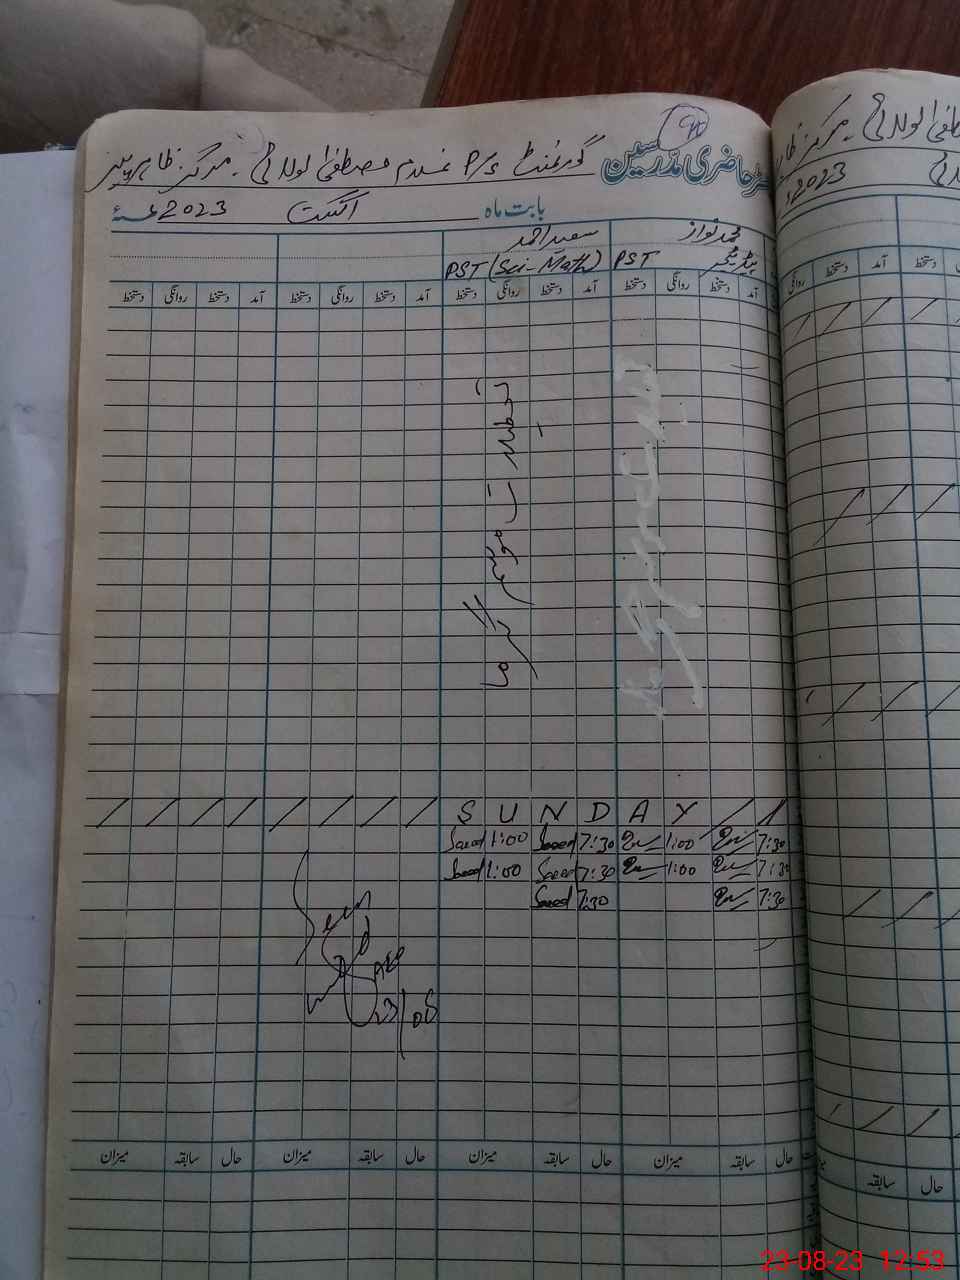 رجسٹر حاضری مدرسین گورنمنٹ P/S غلام مصطفیٰ لولائی۔ مرکز ظاہر پیر
بابت ماہ اگست 2023
محمد نواز سعید احمد
ہیڈ ٹیچر PST PST (Sci-Math)
آمد دستخط روانگی دستخط آمد دستخط روانگی دستخط آمد دستخط روانگی دستخط آمد دستخط روانگی دستخط
تعطیلات موسم گرما
S U N D A Y
Saeed 1:00 Saeed 7:30 1:00 7:30
Saeed 1:00 Saeed 7:30 1:00 7:30
Saeed 7:30 7:30
Seen
AEO
23/08
حال سابقہ میزان حال سابقہ میزان حال سابقہ میزان حال سابقہ میزان
2023
آمد دستخط روانگی
حال سابقہ
23-08-23 12:53